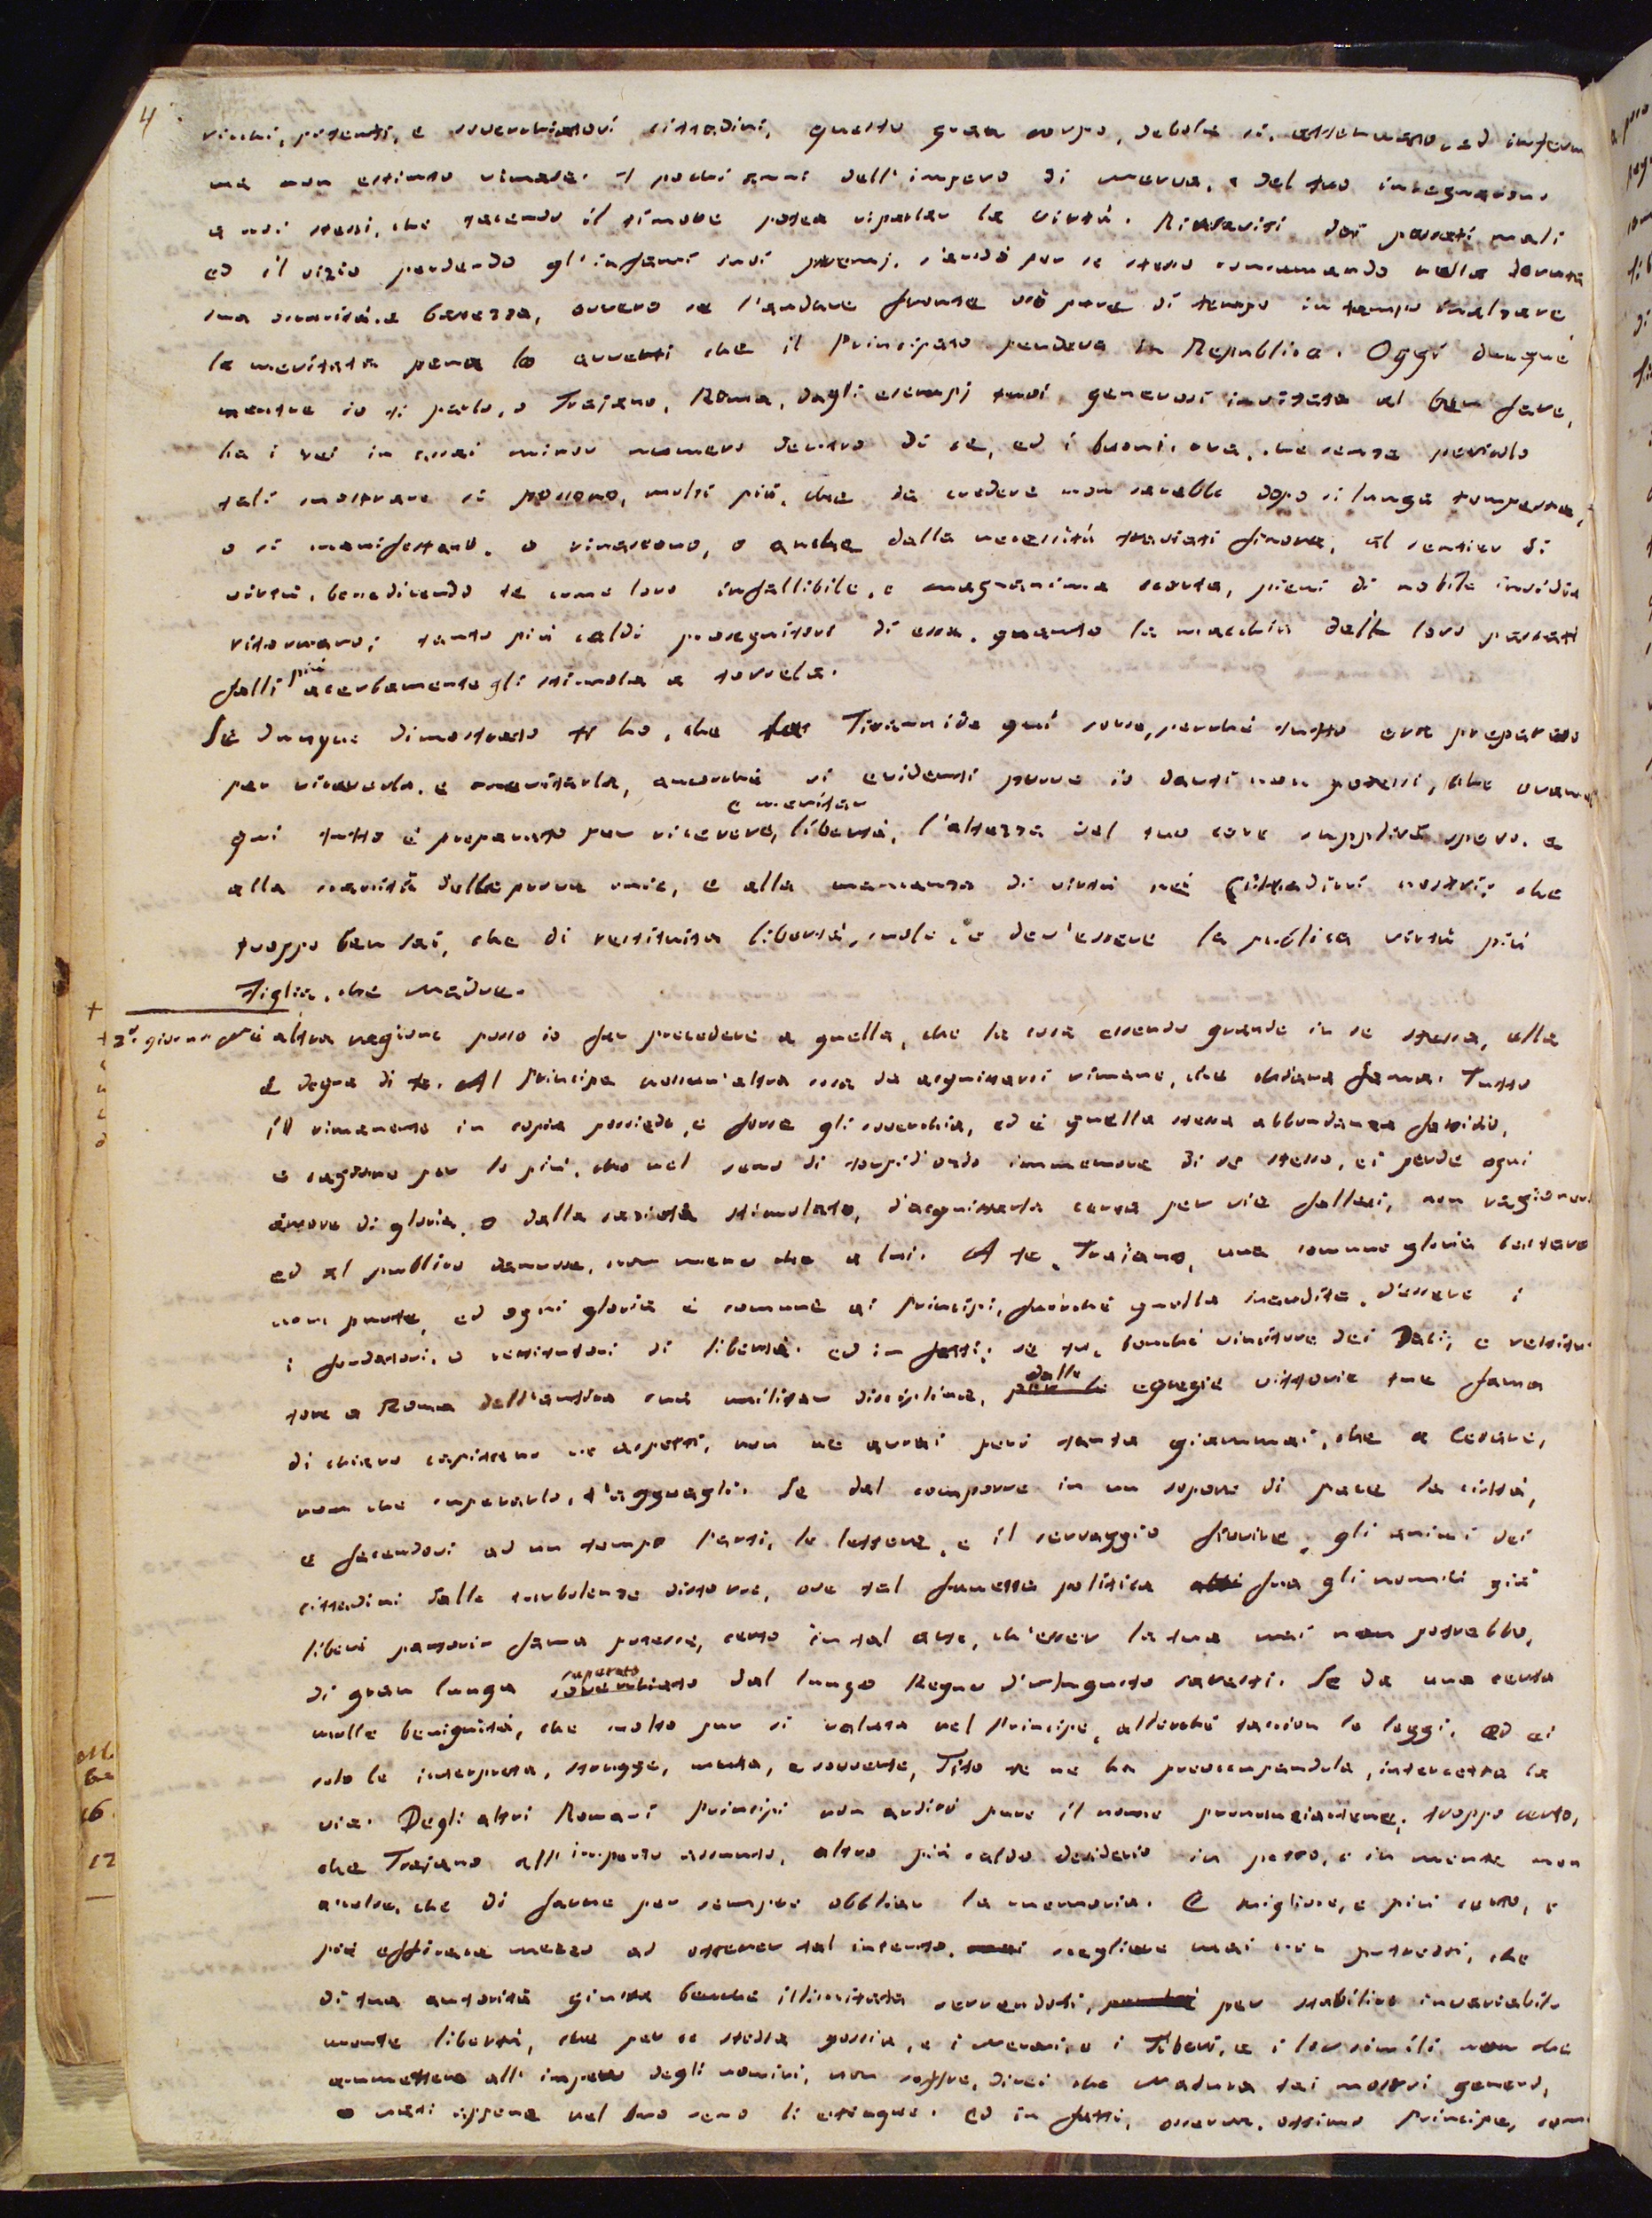 4
ricchi, potenti, e soverchiatori cittadini, questo gran corpo, debole sì, estenuato, ed infermo
ma non estinto rimase. I pochi anni dell'impero di Nerva, e del tuo insegnarono
a noi stessi, che tacendo il timore potea riparlar la virtù. Riaravisi dei passati mali
ed il vizio perdendo gl'infami suoi premj, siccome per se stesso rimanendo nella dovuta
sua oscurità, e bassezza, ovvero se l'andare fronte osò pure di tempo in tempo innalzare
la meritata pena lo avvertì che il Principato pendeva in Republica. Oggi dunque
mentre io ti parlo, o Trajano, Roma, dagli esempj tuoi generosi invitata al ben fare,
ha i rei in assai minor numero dentro di se, ed i buoni, ora, che senza pericolo
tali mostrare si possono, molti più, che da credere non sarebbe dopo sì lunga tempesta,
o si manifestano, o rinascono, o anche dalla necessità traviati finora, al sentier di
virtù, benedicendo te come loro infallibile, e magnanima scorta, pieni di nobile invidia
ritornano; tanto più caldi proseguitori di essa, quanto la macchia delli loro passati
falli più acerbamente gli stimola a torsela.
Se dunque dimostrato ti ho, che la Tirannide quì sorse, perchè tutto era preparato
per riceverla, e meritarla, ancorchè sì evidenti prove io darti non potessi, che ora
qui tutto è preparato per ricevere, e meritar libertà, l'altezza del tuo core supplirà spero, e
alla scarsità delle prove mie, e alla mancanza di virtù nei Cittadini nostri; che
troppo ben sai, che di restituita libertà, suole, e dev'essere la publica virtù più
Figlia, che Madre.
2°. giorno Nè altra ragione posso io far precedere a quella, che la cosa essendo grande in se stessa, ella
è degna di te. Al Principe nessun'altra cosa da acquistarsi rimane, che chiara fama. Tutto
il rimanente in copia possiede, e forse gli soverchia, ed è quella stessa abbondanza fastidio,
e cagione per lo più, che nel seno di torpid'ozio immemore di se stesso, ei perde ogni
amore di gloria, o dalla sazietà stimolato, d'acquistarla cerca per vie fallaci, non ragionevoli
ed al publico dannose, non meno che a lui. A te, Trajano, una comune gloria bastare
non puote, ed ogni gloria è comune ai Principi, fuorchè quella inaudita, d'essere i
i fondatori, o restitutori di libertà. ed in fatti; se tu, benchè vincitore dei Daci, e restitu-
tore a Roma dell'antica sua militar disciplina, dalle egregie vittorie tue fama
di chiaro capitano ne aspetti, non ne avrai però tanta giammai, che a Cesare,
non che superarlo, t'agguagli. Se dal comporre in un sopore di pace la città,
e facendovi ad un tempo l'arti, le lettere, e il servaggio fiorire, gli animi dei
cittadini dalle turbolenze distorre, ove tal funesta politica fra gli uomini già
liberi partorir fama potesse, certo in tal arte, ch'esser la tua mai non potrebbe,
di gran lunga superato dal lungo Regno di Augusto saresti. Se da una certa
molle benignità, che molto pur si valuta nel Principe, allorchè taccion le leggi, ed ei
solo le interpreta, strugge, muta, e sovverte, Tito te ne ha preoccupandola, intercetta la
via. Degli altri Romani Principi non ardirò pure il nome pronunziartene; troppo certo,
che Trajano all'imperio assunto, altro più caldo desiderio in petto, e in mente non
accolse, che di farne per sempre obbliar la memoria. E migliore, e più certo, e
più efficace mezzo ad ottener tal intento, scegliere mai non potresti, che
di tua autorità giusta benchè illimitata servendoti, per stabilire invariabil-
mente libertà, che per se stessa possia, e i Neroni, e i Tiberj, e i lor simili non che
ammettere all'impero degli uomini, non soffre, direi che Madura tai mostri generi,
o nati appena nel suo seno li estingue. ed in fatti, osserva, ottimo Principe, com-